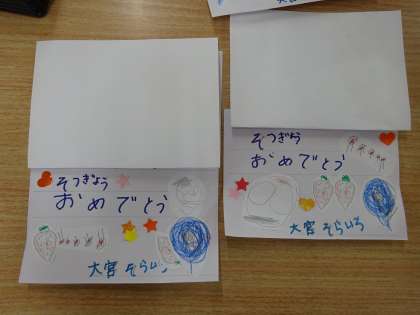 大宮
そつぎょう
おめでとう
大宮 そらいろ
そつぎょう
おめでとう
大宮 そらいろ